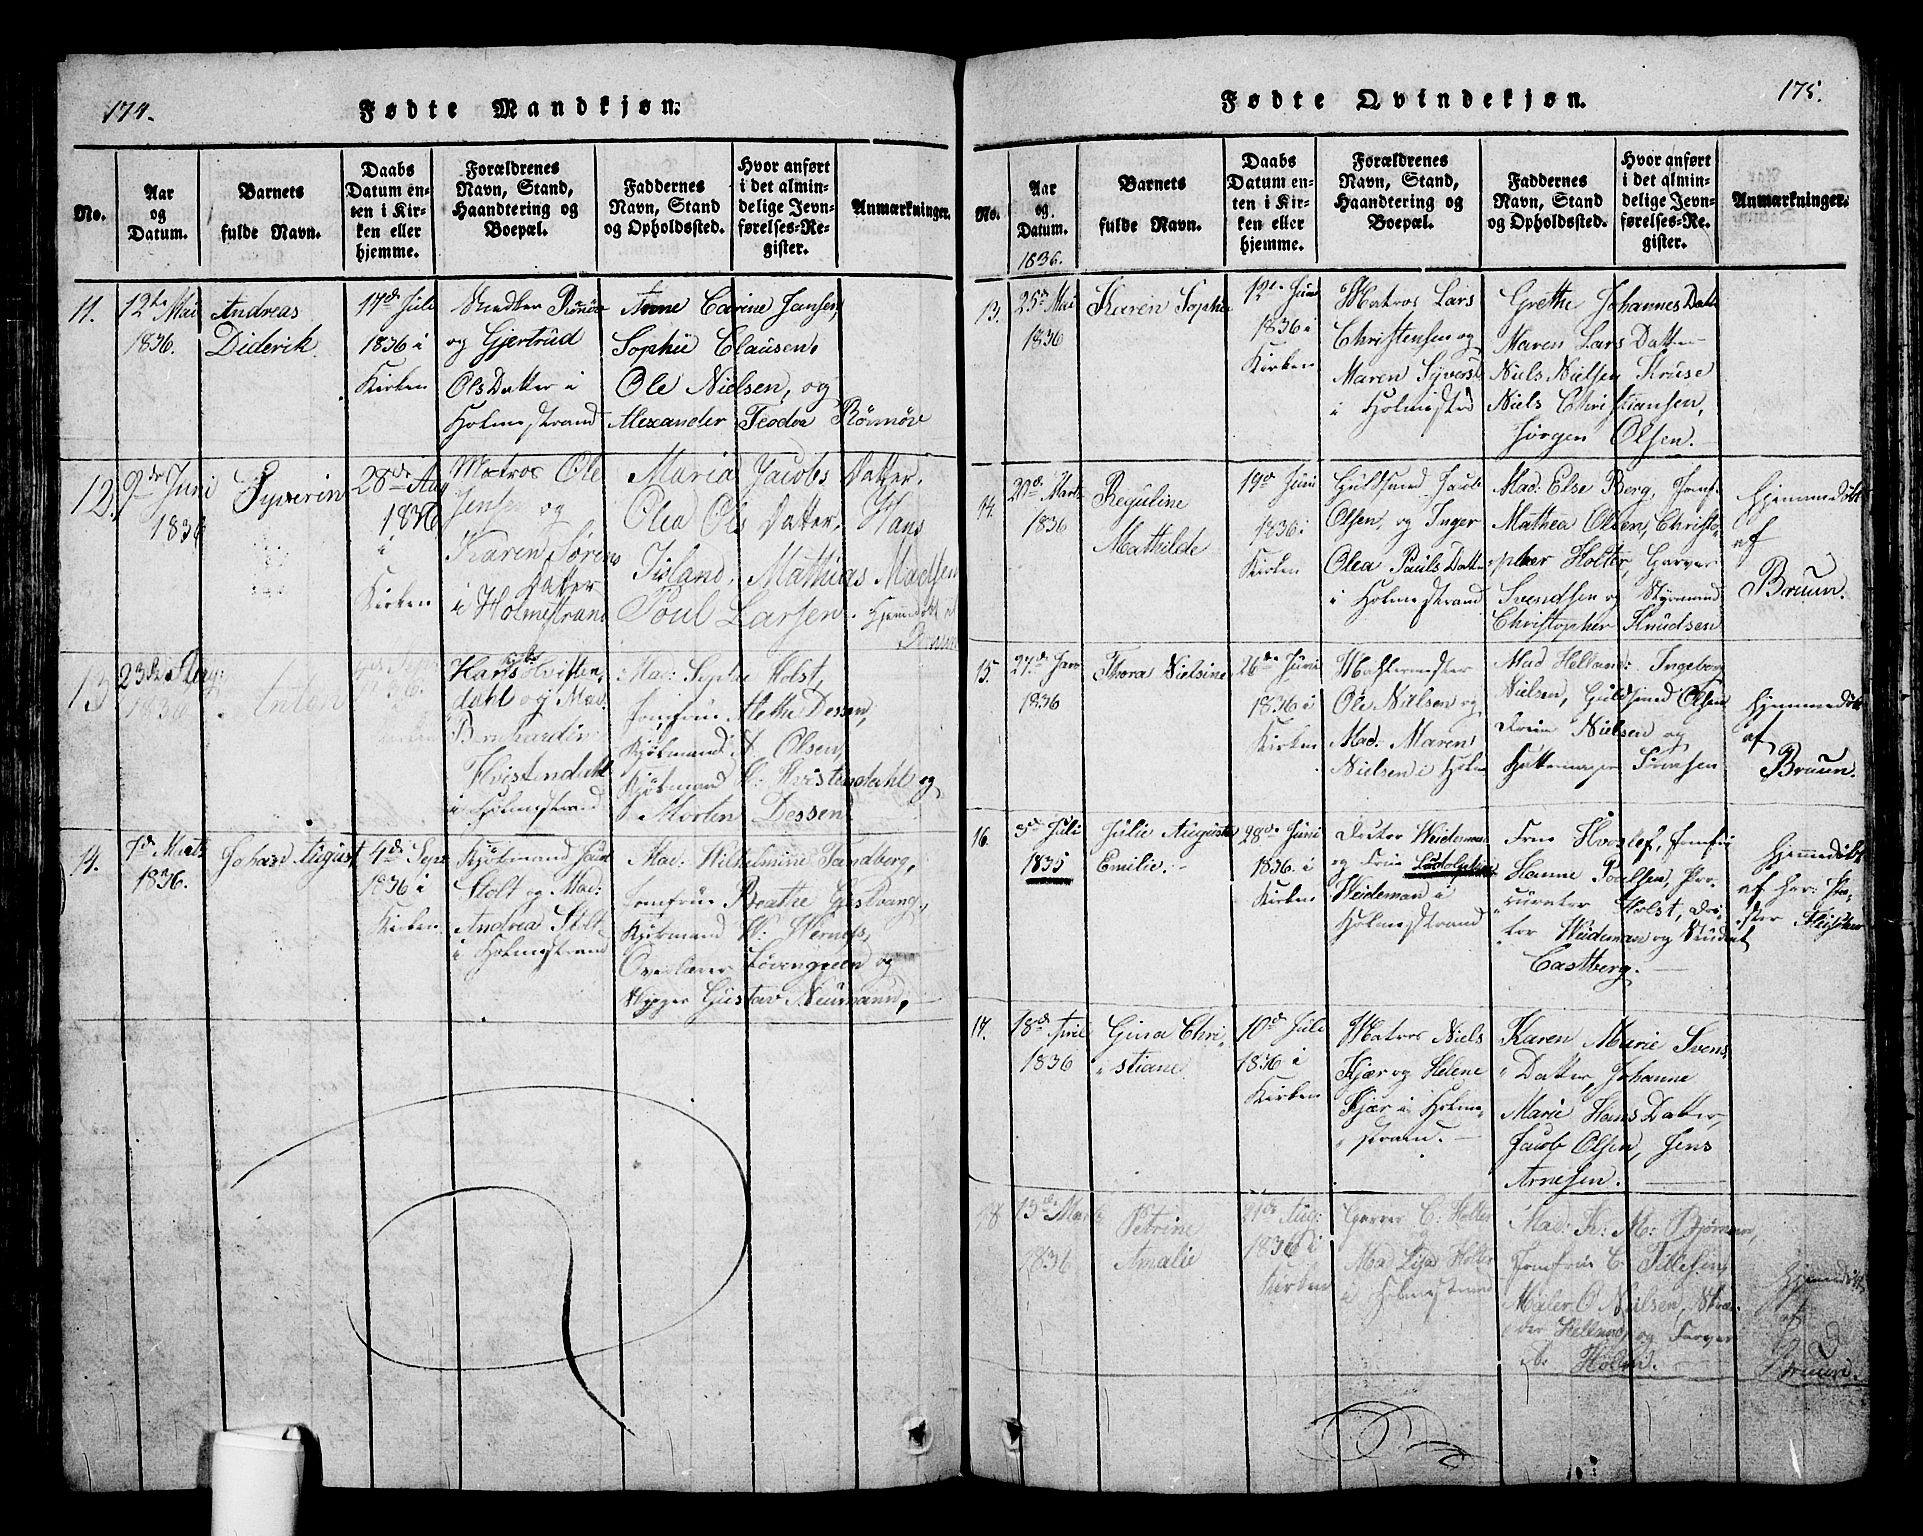 174.
Fødte Mandkjøn.
No.
Aar
og
Datum.
Barnets
fulde Navn.
Daabs
Datum en-
ten i Kir-
ken eller
hjemme.
Forældrenes
Navn, Stand,
Haandtering og
Boepæl.
Faddernes
Navn, Stand
og Opholdssted.
Hvor anført
i det almin-
delige Jevn-
førelses-Re-
gister.
Anmærkninger.
11.
12te Mai
1836.
Andreas
Diderik
17de Juli
1836 i
Kirken
og Gjertrüd
Ols Datter i
Holmestrand
Anne Carine Jansen,
Sophie Clausen,
Ole Nielsen, og
Alexander Teodor Rönnöv
12.
9de Juni
1836
Syverin
28de Aug
1836
i
Kirken
Matros Ole
Jensen og
Karen Sörens
Datter
i Holmestrand
Maria Jacobs Datter,
Olea Ols Datter, Hans
Island, Mathias Madsen
Poul Larsen. Hjemmedöbt af
Bruun
13
23de
1836
Anton
1836.
Hans Hvisten-
dahl og Mad.
Bernhardin
Hvistendahl
i Holmestrand
Mad: Sophie Holst,
Jomfrue Alethe Dessen,
Kjöbmand A. Olsen,
Kjöbmand H. Hvistendahl og
Morten Dessen
14.
7de Marts
1836.
Johan August
4de Sept
1836 i
Kirken
Kjöbmand
Stolt og Mad:
Andrea Stolt
i Holmestrand
Mad: Wilhelmine Sandberg,
Jomfrue Beathe Gustvang,
Kjöbmand W. Werness,
Overlærer Lövengreen og
Gustav Neumann,
175.
Fødte Qvindekjøn.
No.
Aar
og
Datum.
1836.
Barnets
fulde Navn.
Daabs
Datum en-
ten i Kir-
ken eller
hjemme.
Forældrenes
Navn, Stand,
Haandtering og
Boepæl.
Faddernes
Navn, Stand
og Opholdssted.
Hvor anført
i det almin-
delige Jevn-
førelses-Re-
gister.
Anmærkninger.
13.
25de Mai
1836
Karen Sophie
12te Juni
1836 i
Kirken
Matros Lars
Christensen og
Maren Syverst
i Holmestrd
Grethe Johannes Datt
Maren Lars Datter
Niels Nielsen Kruse
Niels Christiansen,
Jørgen Olsen.
14.
20de Marts
1836
Reguline
Mathilde
19de Juni
1836 i
Kirken
Guldsmed Jacob
Olsen, og Inger
Olea Pauls Datter
i Holmestrand
Mad: Else Berg, Jomf.
Mathea Olsen, Christo-
pher Holter, Garver
Svendsen og Styrmand
Christopher Knudsen
Hjemmedöbt
af
Bruun.
15.
27de Janv
1836
Thora Nielsine
26de Juni
1836 i
Kirken
Ole Nielsen og
Mad. Maren
Nielsen i Holm
Mad Helland: Ingeborg
Nielsen, Guldsmed Olsen
Nielsen og
Hattemager Sörensen
Hjemmedöbt
af
Bruun.
16.
3de Juli
1835
Julie Auguste
Emilie.
28de Juni
1836 i
Kirken
Doctor Weideman
og Frue
Weideman i
Holmestrand
Frue Hvoslef, Jomfrue
Hanne Poulsen, Pro-
curator Holst, Doc-
tor Weideman og Student
Castberg.
Hjemmedöbt
af Her: Pa-
stor Fleischer
17.
18de April
1836
Gina Chri-
stiane
10de Juli
1836 i
Kirken
Matros Niels
Kjær og Helene
Kjær i Holme-
strand.
Karen Marie Svens
Datter, Johanne
Marie Hans Datter,
Jacob Olsen, Jens
Arnesen.
18
13de Marts
1836
Petrine
Amalie
21de Aug:
1836 i
Kirken
Garver C. Holter
og
Mad Lisa Holter
i Holmestrand
Mad. K: M: Björnner,
Jomfrue C. Tillesen,
Maler O Nielsen,
og Farver
Hjemmedöbt
af
Bruun.